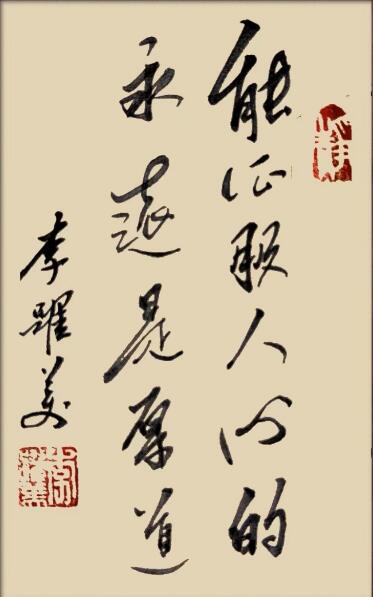 能征服人心的
永远是厚道
李跃美